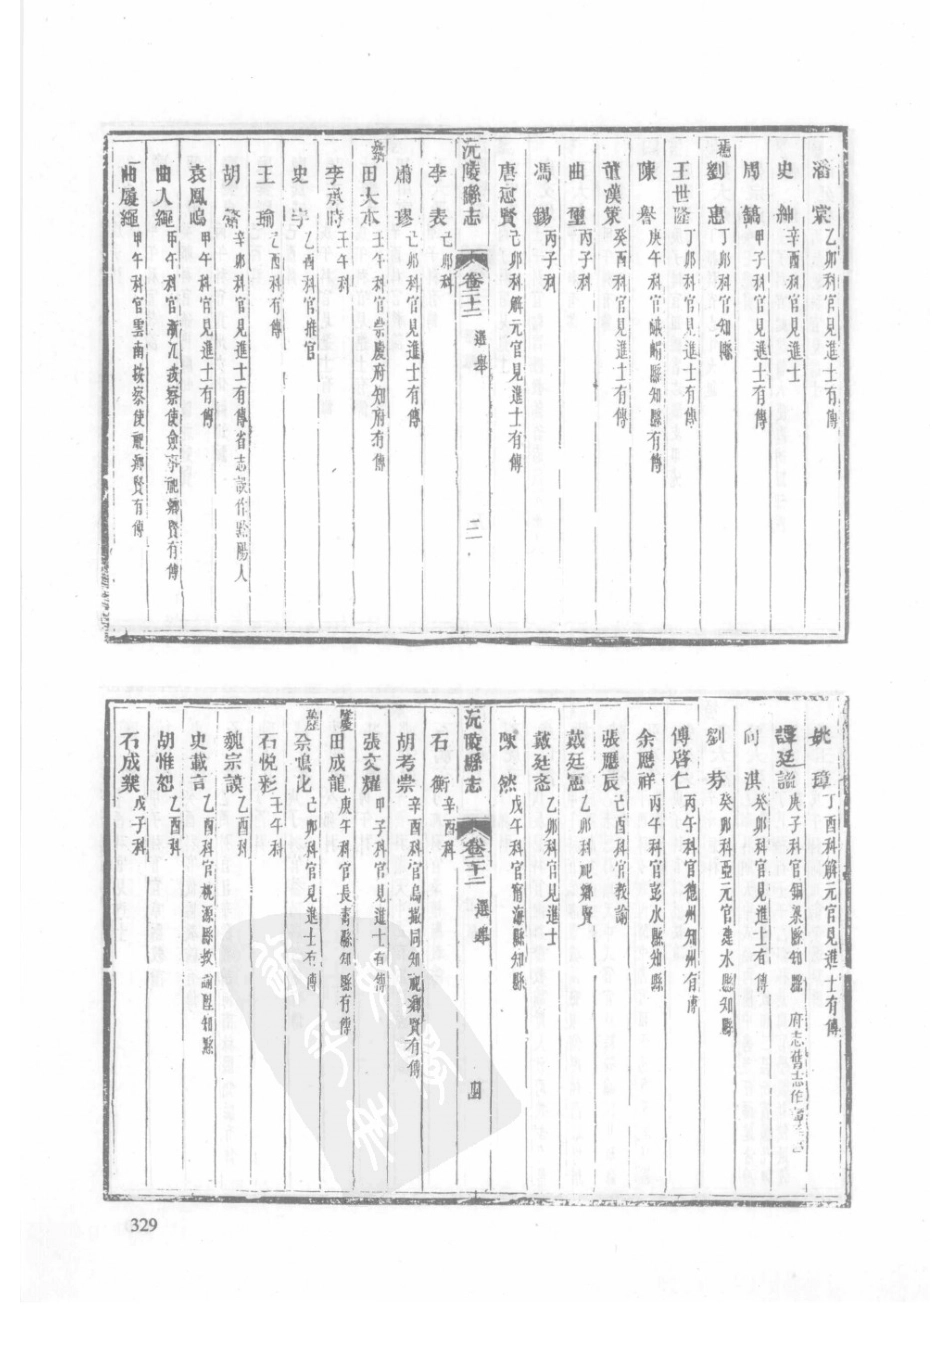 潘棠 乙卯科官見進士有傳
史紳 辛酉科官見進士
周鎬 甲子科官見進士有傳
劉惠 丁卯科官知縣
王世隆 丁卯科官見進士有傳
陳譽 庚午科官 知縣有傳
董漢策 癸酉科官見進士有傳
曲璽 丙子科
馮錫 丙子科
唐愈賢 己卯科解元官見進士有傳
沅陵縣志 卷二十二 選舉 三
李表 己卯科
蕭璆 己卯科官見進士有傳
田大本 壬午科官崇慶府知府有傳
李承時 壬午科
史宇 乙酉科官推官
王瑜 乙酉科有傳
胡鰲 辛卯科官見進士有傳省志誤作黔陽人
袁鳳鳴 甲午科官見進士有傳
曲入繩 甲午科官浙江按察使僉事祀鄉賢有傳
曲履繩 甲午科官雲南按察使祀鄉賢有傳
姚璋 丁酉科解元官見進士有傳
譚廷 庚子科官銅梁縣知縣 府志舊志作
向淇 癸卯科官見進士有傳
劉芬 癸卯科亞元官建水縣知縣
傅啓仁 丙午科官德州知州有傳
余應祥 丙午科官彭水縣知縣
張應辰 己酉科官教諭
戴廷憲 乙卯科祀鄉賢
戴廷忞 乙卯科官見進士
陳然 戊午科官甯海縣知縣
沅陵縣志 卷二十二 選舉 四
石衡 辛酉科
胡考祟 辛酉科官烏撒同知祀鄉賢有傳
張文耀 甲子科官見進士有傳
隆慶
田成龍 庚午科官長壽縣知縣有傳
萬歷
佘鳴化 己卯科官見進士有傳
石悅彩 壬午科
魏宗謨 乙酉科
史載言 乙酉科官桃源縣教諭陞知縣
胡惟恕 乙酉科
石成樂 戊子科
329